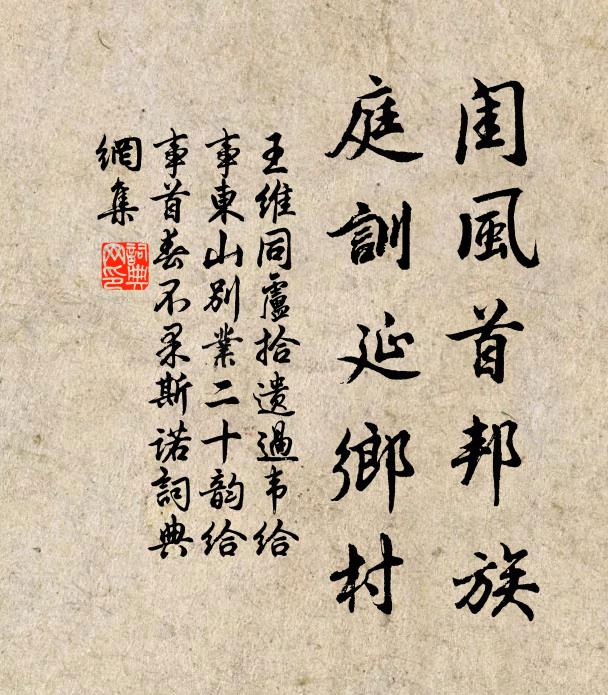 閨風首邦族
庭訓延鄉村
王維同盧拾遺過韦給
事東山別業二十韵給
事首春不果斯诺詞典
網集
詞典网印